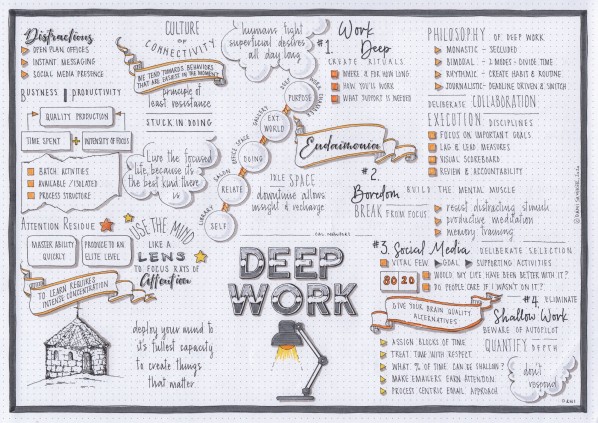 Distractions
OPEN PLAN OFFICES
INSTANT MESSAGING
SOCIAL MEDIA PRESENCE
BUSYNESS || PRODUCTIVITY
QUALITY PRODUCTION
TIME SPENT + INTENSITY OF FOCUS
BATCH ACTIVITIES
AVAILABLE / ISOLATED
PROCESS STRUCTURE
ATTENTION RESIDUE
MASTER ABILITY
QUICKLY
PRODUCE TO AN
ELITE LEVEL
TO LEARN REQUIRES
INTENSE CONCENTRATION
CULTURE
OF
CONNECTIVITY
WE TEND TOWARDS BEHAVIORS
THAT ARE EASIEST IN THE MOMENT
principle of
least resistance
STUCK IN DOING
Live the focused
life, because it's
the best kind there
is
USE THE MIND
LIKE A
LENS
TO FOCUS RAYS OF
Attention
deploy your mind to
it's fullest capacity
to create things
that matter.
humans fight
superficial desires
all day long
PURPOSE
EXT.
WORLD
DOING
RELATE
SELF
GALLERY
OFFICE SPACE
SALON
LIBRARY
DEEP WORK CHAMBER
IDLE SPACE
downtime allows
insight & recharge
CAL NEWPORT
DEEP
WORK
#1. Work
Deep
CREATE RITUALS
WHERE & FOR HOW LONG
HOW YOU'LL WORK
WHAT SUPPORT IS NEEDED
Eudaimonia
#2.
Boredom
BUILD THE MENTAL MUSCLE
BREAK FROM FOCUS
resist distracting stimuli
productive meditation
memory training
PHILOSOPHY OF DEEP WORK
MONASTIC - SECLUDED
BIMODAL - 2 MODES - DIVIDE TIME
RHYTHMIC - CREATE HABIT & ROUTINE
JOURNALISTIC - DEADLINE DRIVEN & SWITCH
DELIBERATE COLLABORATION
EXECUTION DISCIPLINES
FOCUS ON IMPORTANT GOALS
LAG & LEAD MEASURES
VISUAL SCOREBOARD
REVIEW & ACCOUNTABILITY
#3. Social Media DELIBERATE SELECTION
VITAL FEW GOAL SUPPORTING ACTIVITIES
80 20
WOULD MY LIFE HAVE BEEN BETTER WITH IT?
DO PEOPLE CARE IF I WASN'T ON IT?
GIVE YOUR BRAIN QUALITY
ALTERNATIVES
#4. ELIMINATE
Shallow Work
BEWARE OF AUTOPILOT
QUANTIFY DEPTH
ASSIGN BLOCKS OF TIME
TREAT TIME WITH RESPECT
WHAT % OF TIME CAN BE SHALLOW?
MAKE EMAILERS EARN ATTENTION
PROCESS CENTRIC EMAIL APPROACH
don't
respond